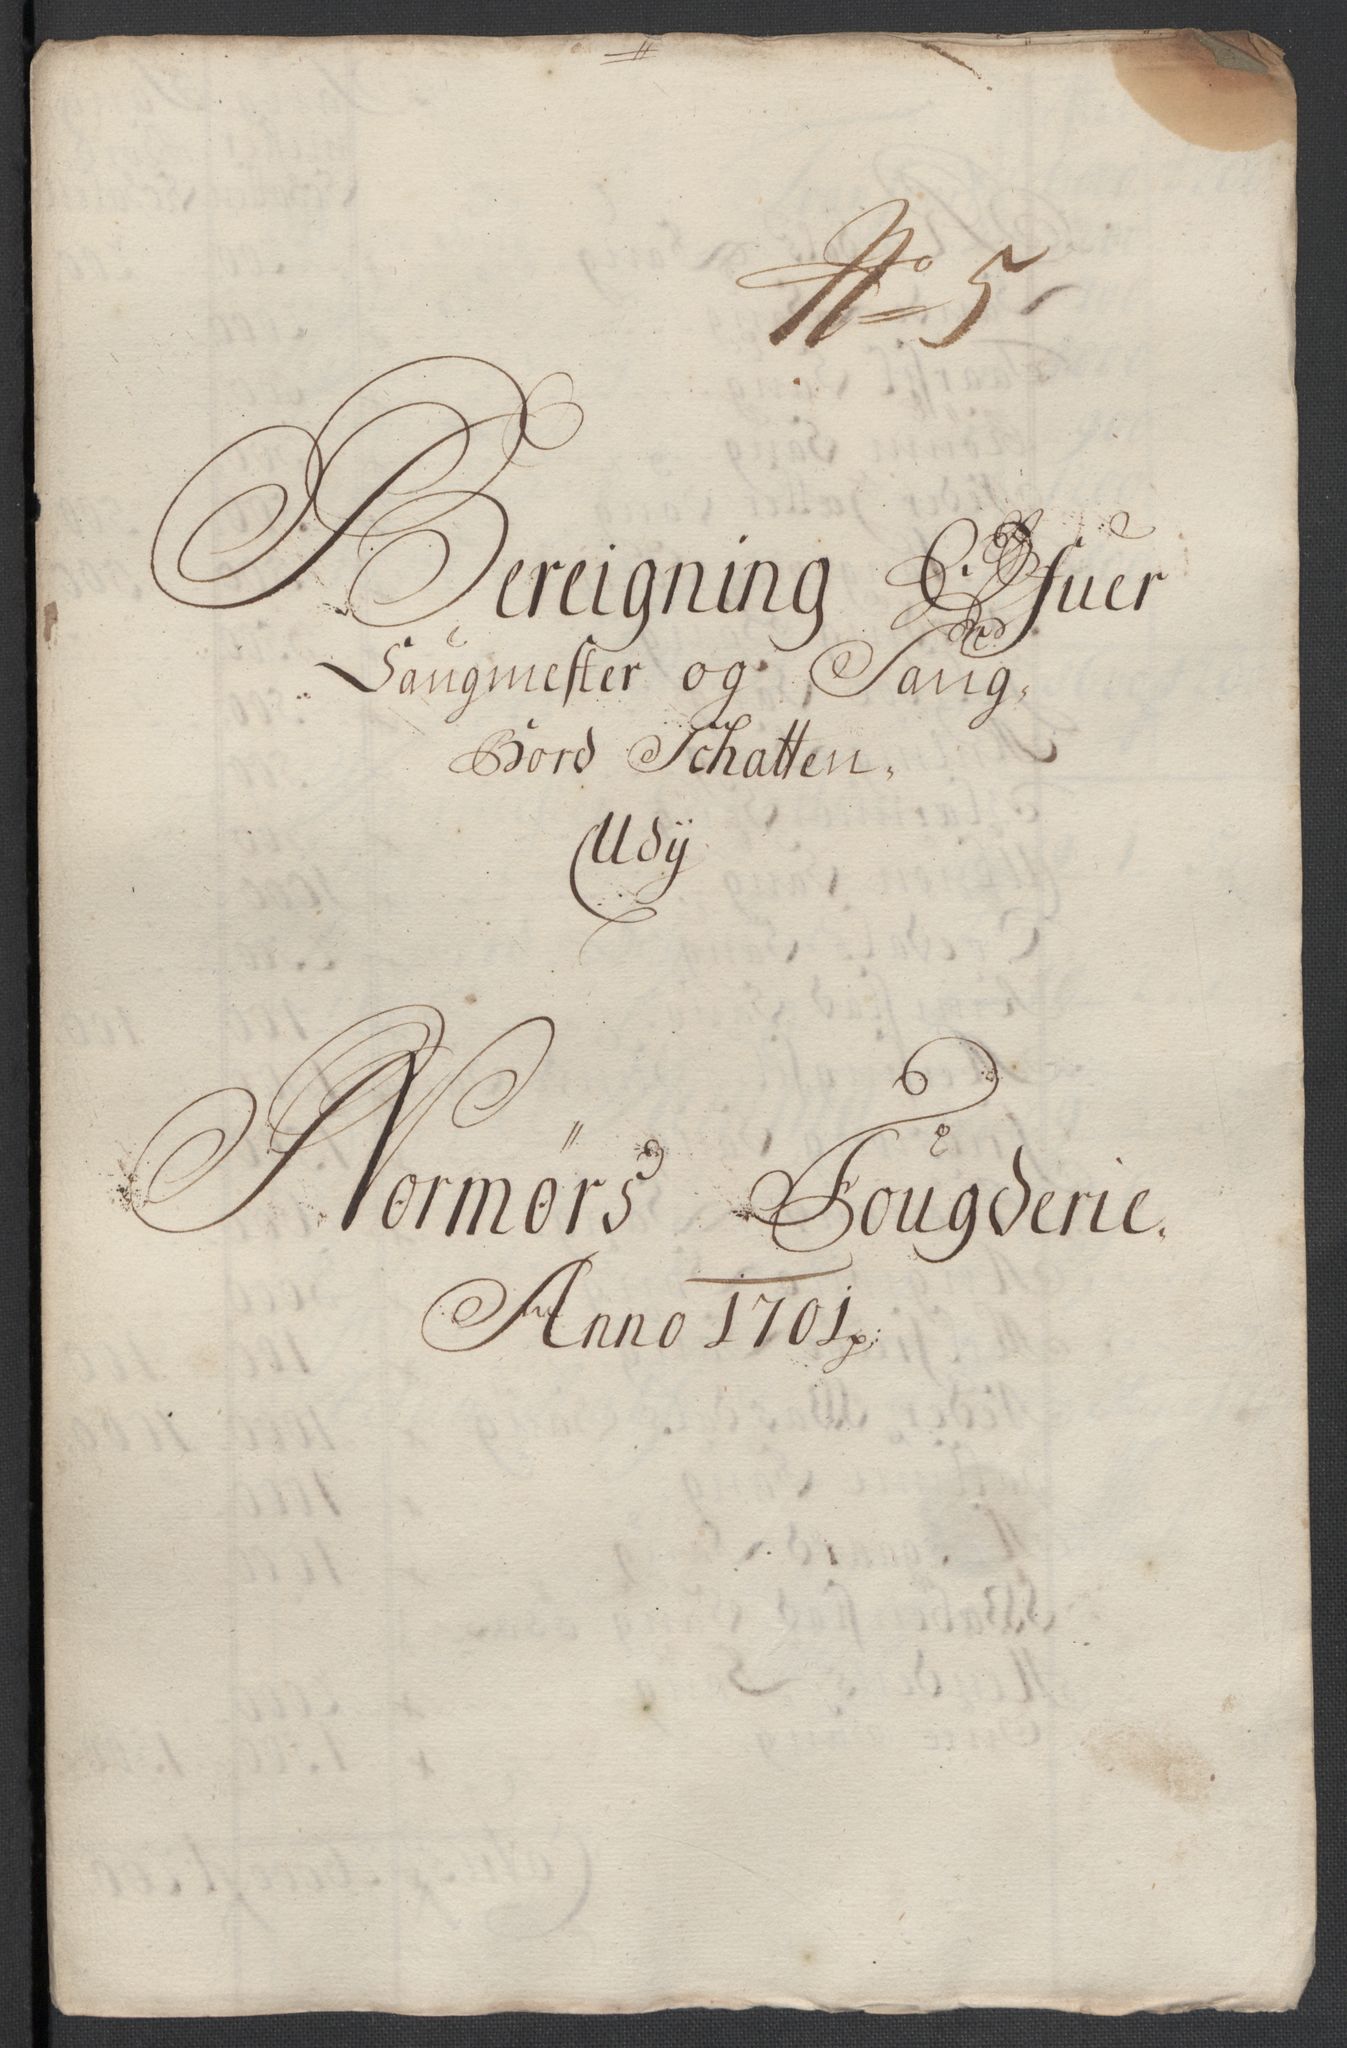 No 5
Bereigning Ofuer
Saugmester og Saug,
Bord Schatten,
Udÿ
Normørs Fougderie.
Anno 1701